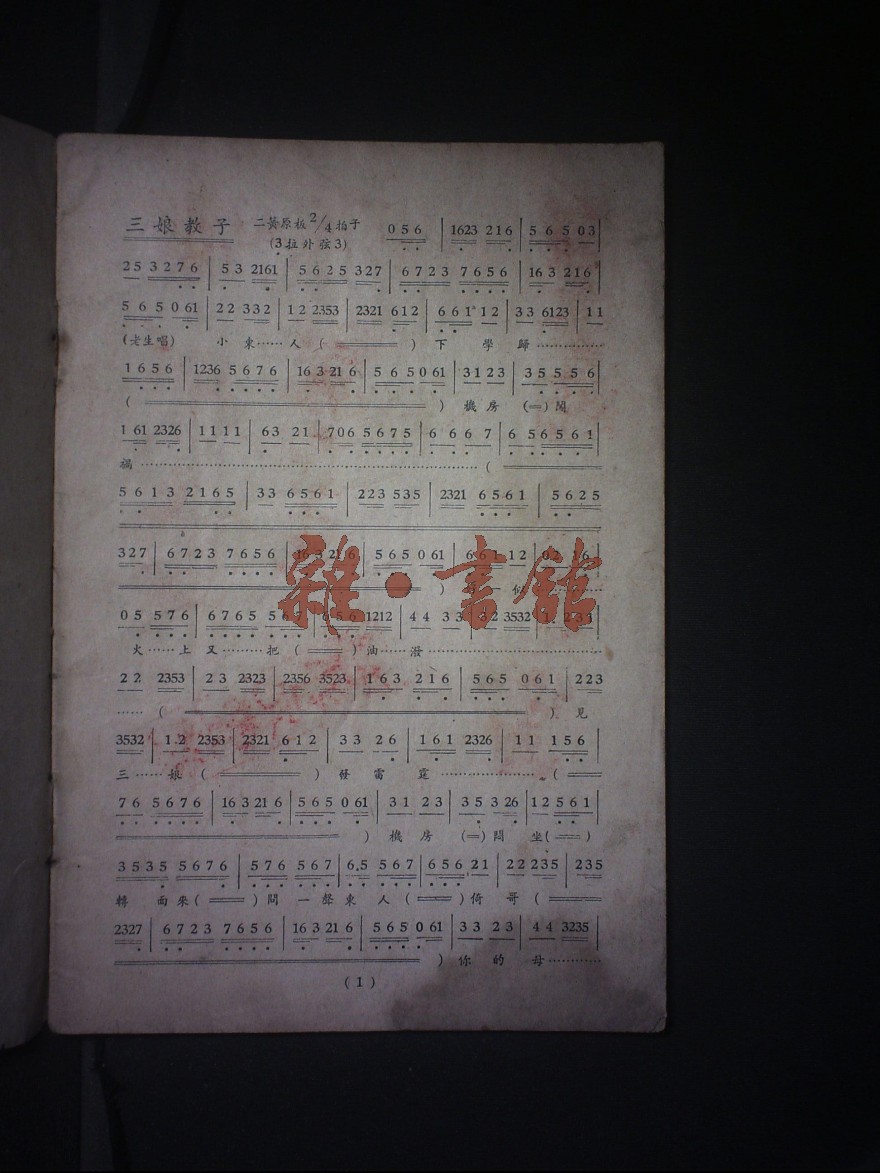 三娘教子 二黃原板2/4拍子
(3拉外弦3) 0 5 6 | 1623 216 | 5 6 5 03 |
25 3276 | 53 2161 | 5625 327 | 6723 7656 | 163 216 |
565061 | 22 332 | 12 2353 | 2321 612 | 661 12 | 33 6123 | 11
(老生唱) 小東……人( ) 下學歸……
1656 | 1236 5676 | 163 216 | 565 061 | 3123 | 35 556 |
( ) 機房(=)闖
1 61 2326 | 11 11 | 63 21 | 706 5675 | 6 66 7 | 65 6561 |
禍……(
5613 2165 | 33 6561 | 223 535 | 2321 6561 | 5625
327 | 6723 7656 | 163 216 | 565 061 | 661 12 | 02 16 |
) 似……
05 576 | 6765 567 | 656 1212 | 44 33 | 32 3532 | 1. 231 |
火……上又……把( )油……潑……
22 2353 | 23 2323 | 2356 3523 | 163 216 | 565 061 | 223
……( ) 見
3532 | 1.2 2353 | 2321 612 | 33 26 | 161 2326 | 11 156 |
三……娘( ) 發雷霆……(
76 5676 | 163 216 | 565 061 | 31 23 | 353 26 | 12 561 |
) 機房(=)闖 坐( )
3535 5676 | 576 567 | 6.5 567 | 656 21 | 22 235 | 235
轉面來( )問一聲東人( )倚哥(
2327 | 6723 7656 | 163 216 | 565 061 | 33 23 | 44 3235 |
) 你的母……
(1)
雜·書館